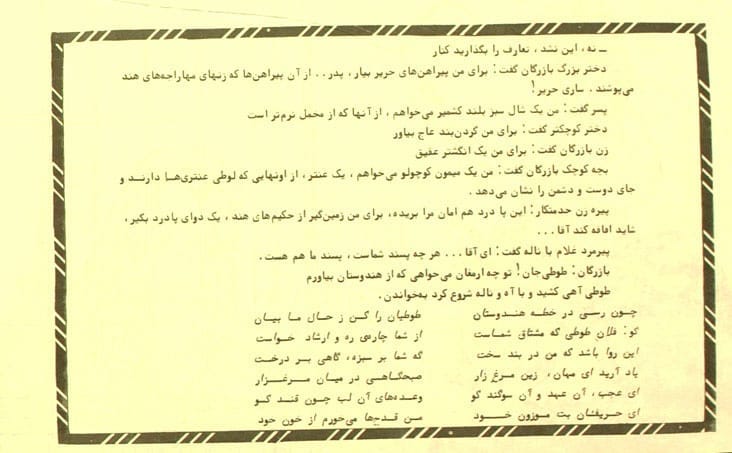 ــ نه، این نشد، تعارف را بگذارید کنار
دختر بزرگ بازرگان گفت: برای من پیراهن‌های حریر بیار، پدر.. از آن پیراهن‌ها که زنهای مهاراجه‌های هند
می‌پوشند. ساری حریر!
پسر گفت: من یک شال سبز بلند کشمیر می‌خواهم، از آنها که از مخمل نرم‌تر است
دختر کوچکتر گفت: برای من گردن‌بند عاج بیاور
زن بازرگان گفت: برای من یک انگشتر عقیق
بچه کوچک بازرگان گفت: من یک میمون کوچولو می‌خواهم، یک عنتر، از اونهایی که لوطی عنتری‌ها دارند و
جای دوست و دشمن را نشان می‌دهد.
پیره زن خدمتکار: این پا درد هم امان مرا بریده، برای من زمین‌گیر از حکیم‌های هند، یک دوای پادرد بگیر،
شاید افاقه کند آقا...
پیرمرد غلام با ناله گفت: ای آقا... هر چه پسند شماست، پسند ما هم هست.
بازرگان: طوطی‌جان! تو چه ارمغان می‌خواهی که از هندوستان بیاورم
طوطی آهی کشید و با آه و ناله شروع کرد به‌خواندن.
چون رسی در خطه هندوستان طوطیان را کن ز حال ما بیان
گو: فلان طوطی که مشتاق شماست از شما چاره‌ی ره و ارشاد خواست
این روا باشد که من در بند سخت گه شما بر سبزه، گاهی بر درخت
یاد آرید ای مهان، زین مرغ زار صبحگاهی در میان مرغزار
ای عجب، آن عهد و آن سوگند کو وعده‌های آن لب چون قند کو
ای حریفان بت موزون خود من قدح‌ها می‌خورم از خون خود